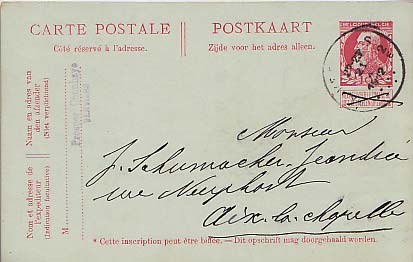 CARTE POSTALE
Côté réservé à l'adresse.
POSTKAART
Zijde voor het adres alleen.
Naam en adres van
den afzender
(Niet verplichtend)
Nom et adresse de
l'expéditeur
(Indication facultative)
M.
Monsieur
J. Schumacher-Jeandrié
rue
Aix-la-Chapelle
* Cette inscription peut être biffée. — Dit opschrift mag doorgehaald worden.